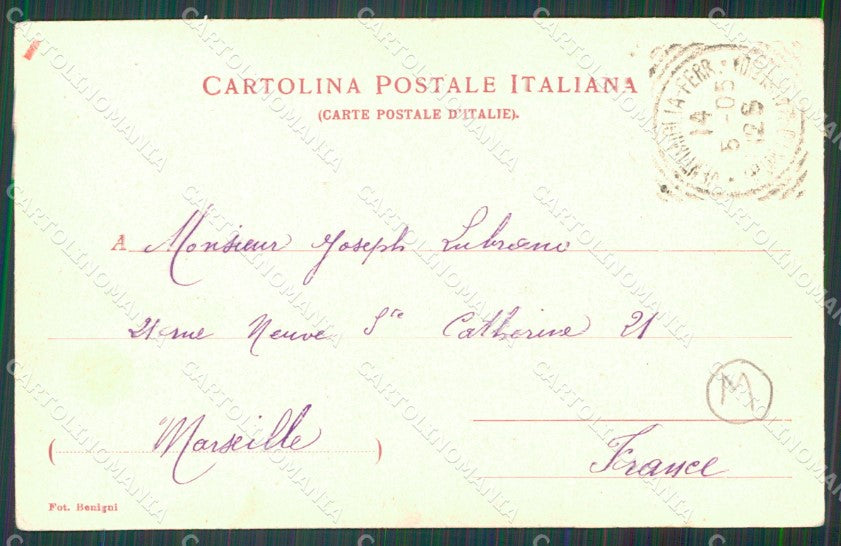 CARTOLINA POSTALE ITALIANA
(CARTE POSTALE D'ITALIE).
14
5-05
12 S
A Monsieur Joseph Lubrano
21 rue Neuve Ste Catherine 21
M
(Marseille)
France
Fot. Benigni
CARTOLINOMANIA